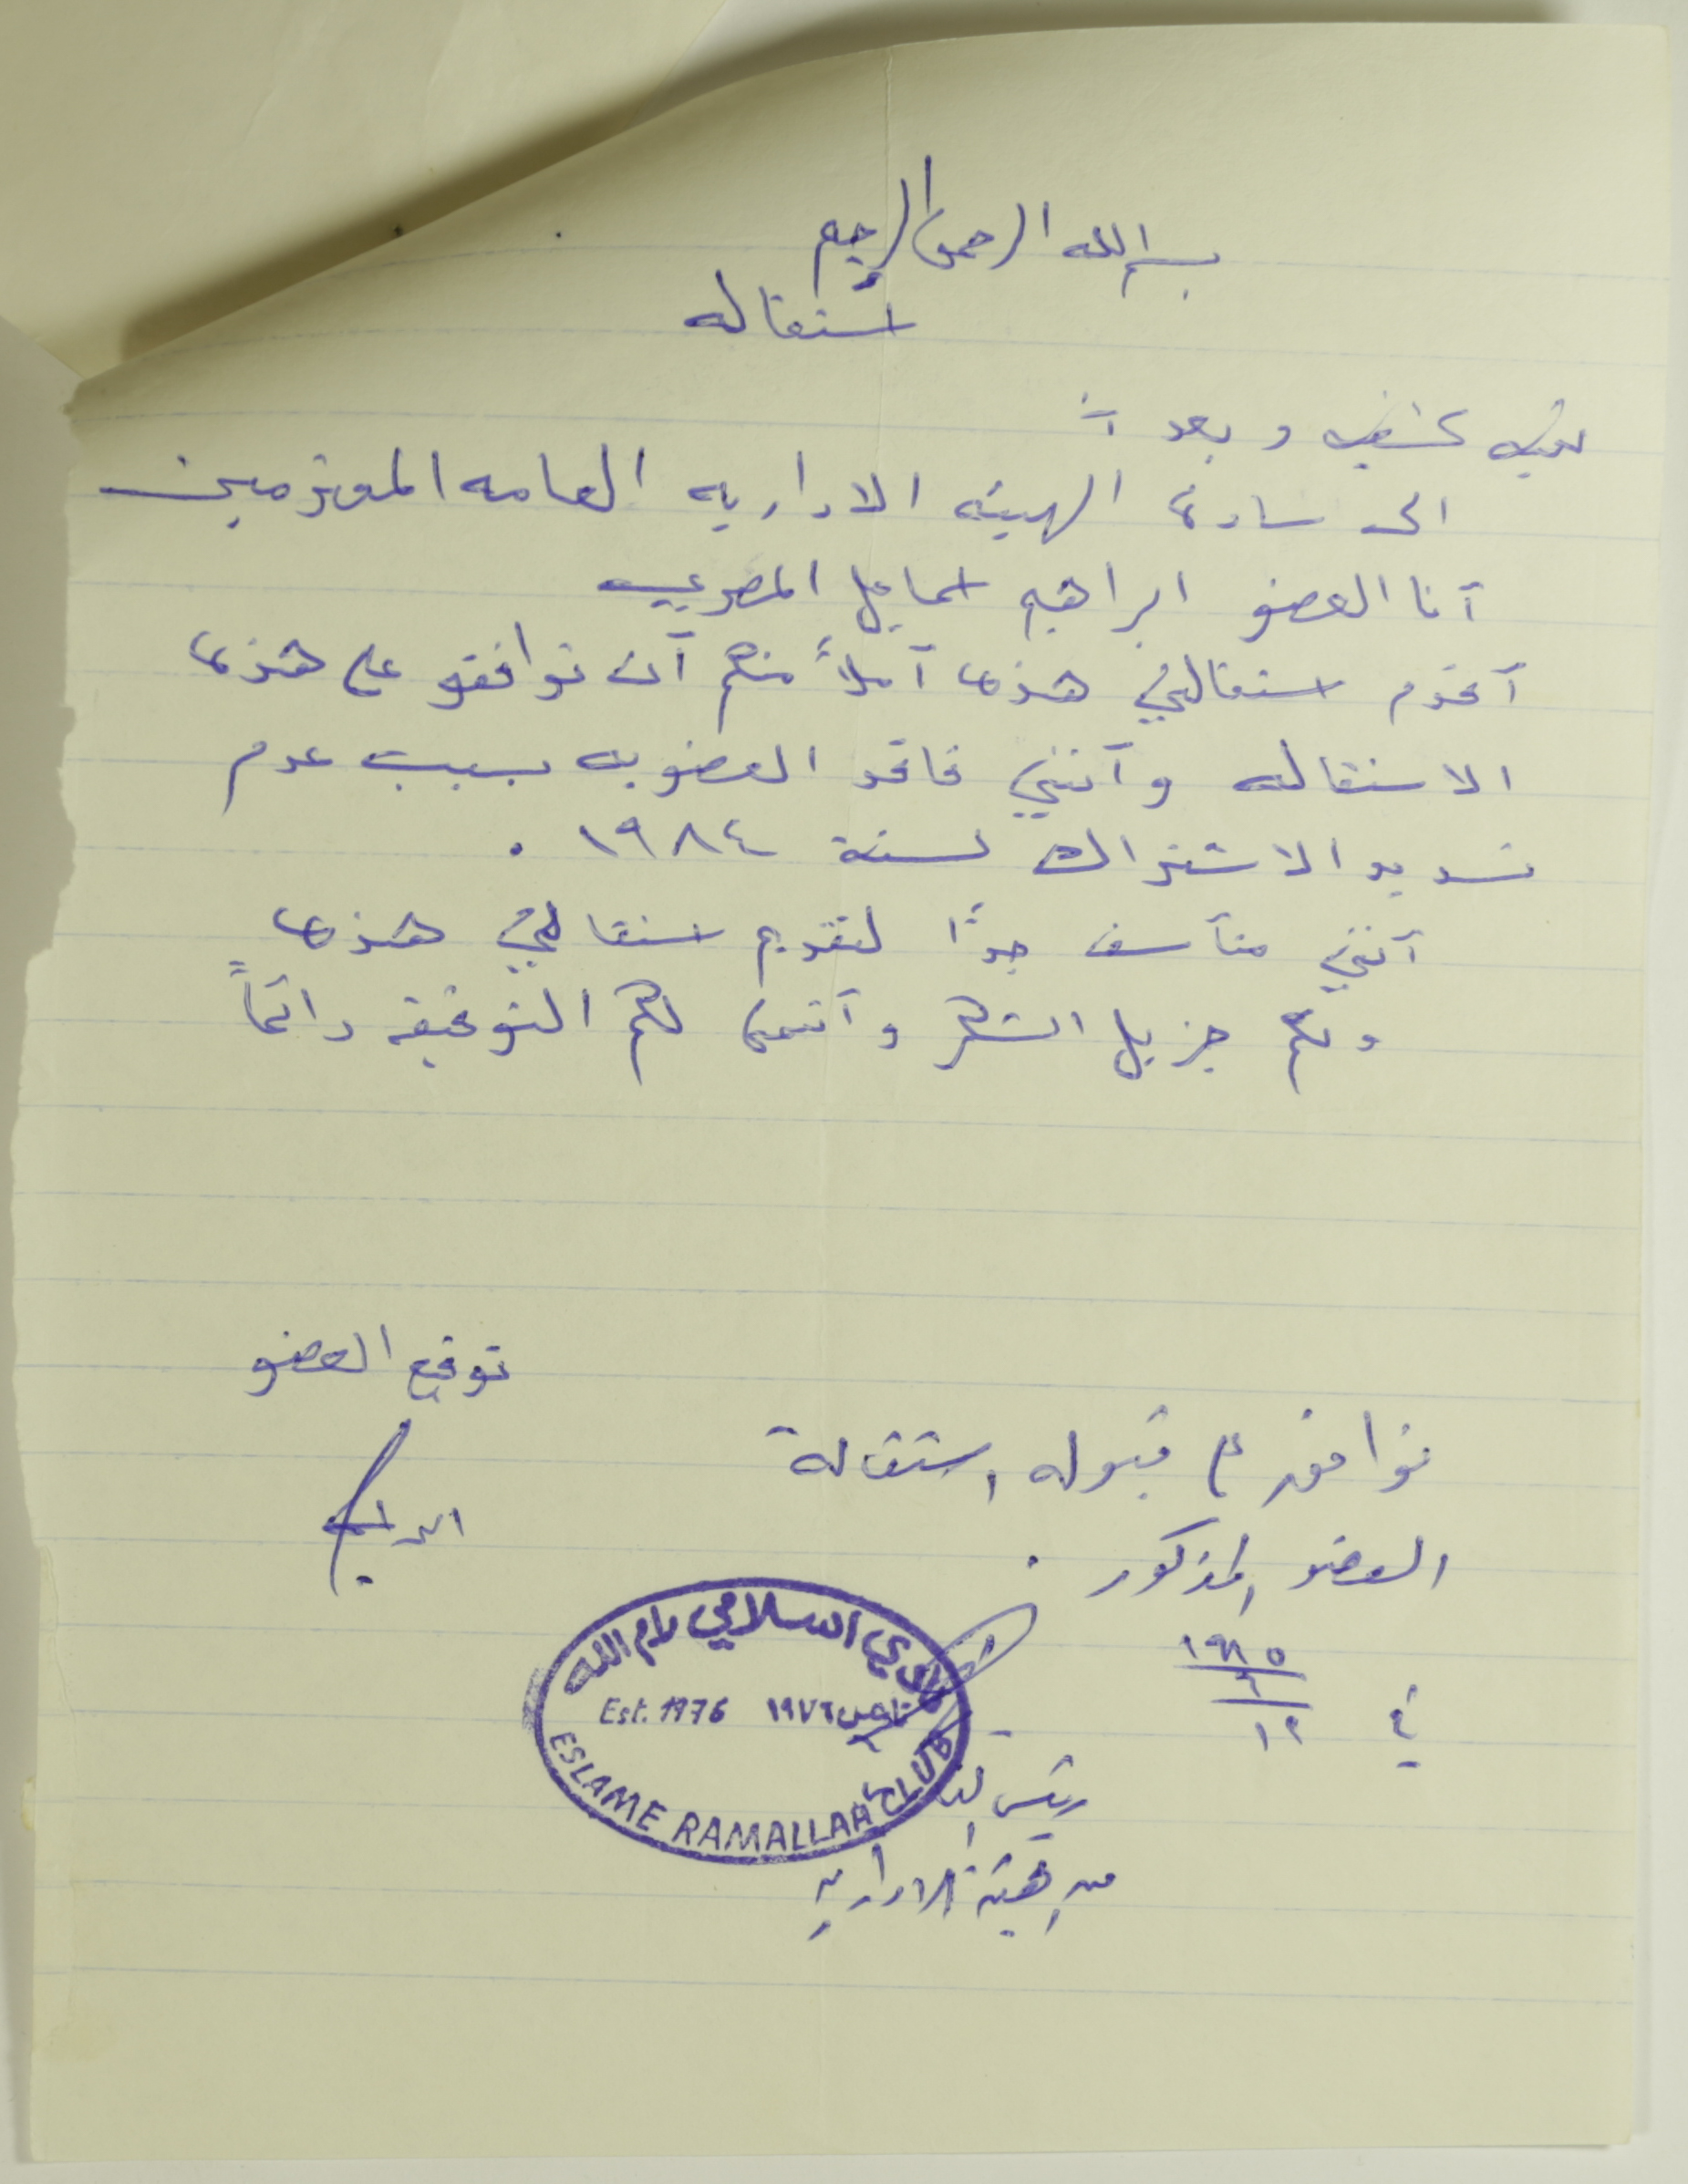 بسم الله الرحمن الرحيم
استقاله
تحيه وبعد :-
الى سادة الهيئه الاداريه العامه المحترمين
أنا العضو ابراهيم اسماعيل المصري
أقدم استقالتي هذه آملاً منكم أن توافقو على هذه
الاستقاله وأنني فاقد العضويه بسبب عدم
تسديد الاشتراك لسنة ١٩٨٤ .
أنني متأسف جداً لتقديم استقالتي هذه
ولكم جزيل الشكر وأتمنى لكم التوفيق دائماً
توقيع العضو
ابراهيم
نوافق على قبول استقالة
العضو المذكور .
في ١٩٨٥
١٢
النادي اسلامي رام الله
Est. 1976 تأسس ١٩٧٦
ESLAME RAMALLAH CLUB
رئيس
الهيئة الادارية